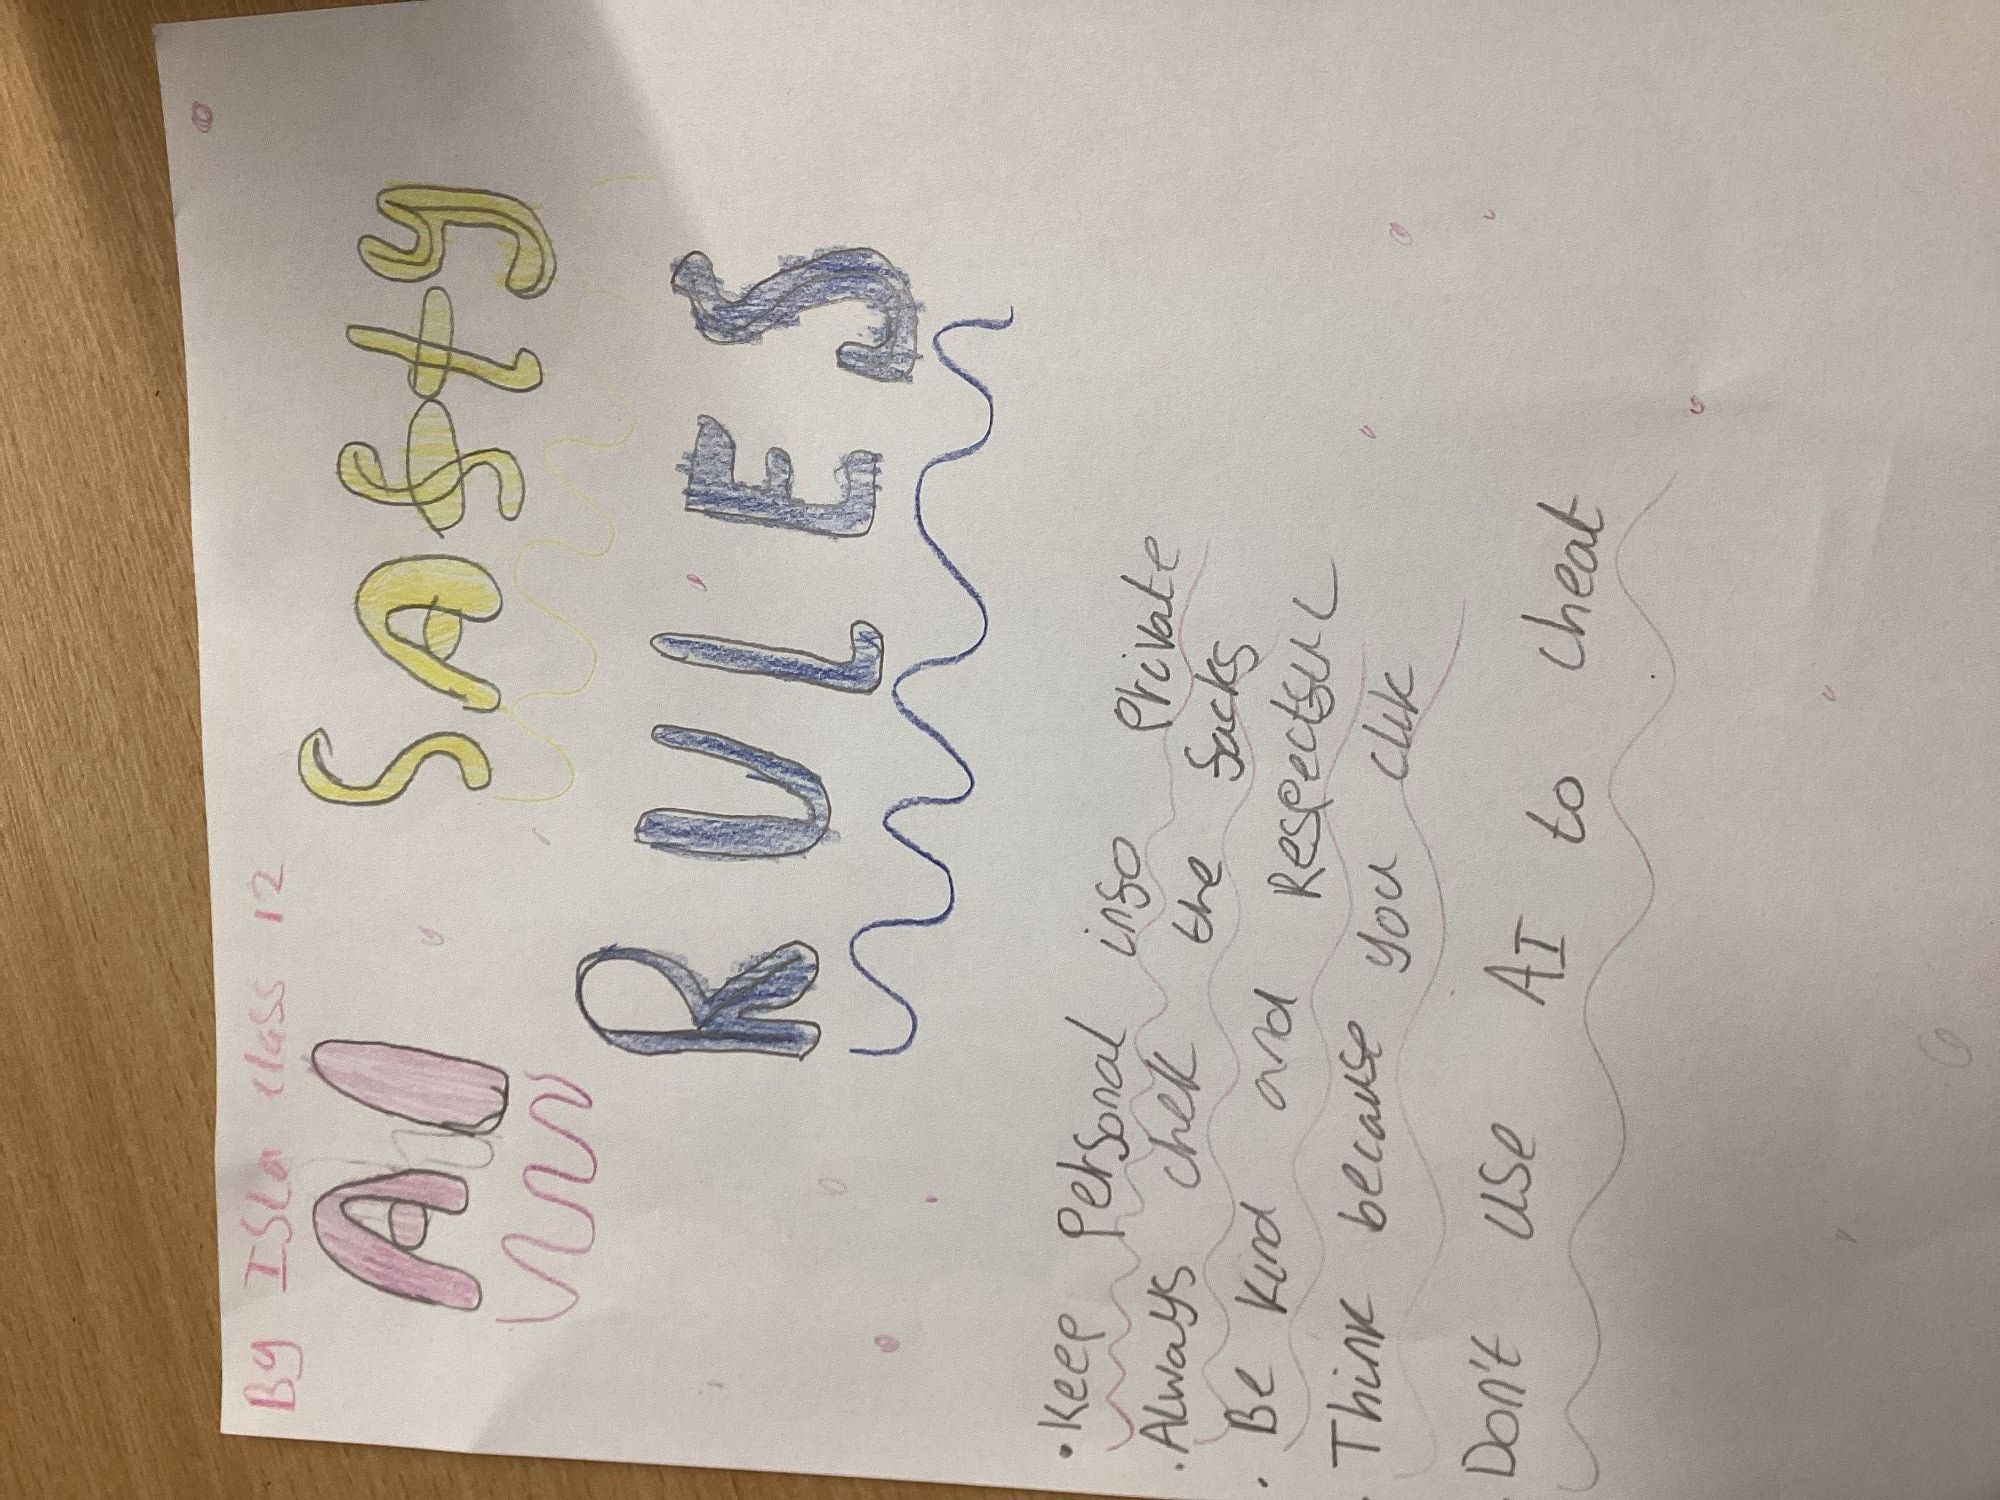 By Isla class 12
AI Safty
RULES
• Keep Personal info Private
• Always chek the facks
• Be kind and Respectful
• Think because you clik
• Don't use AI to cheat